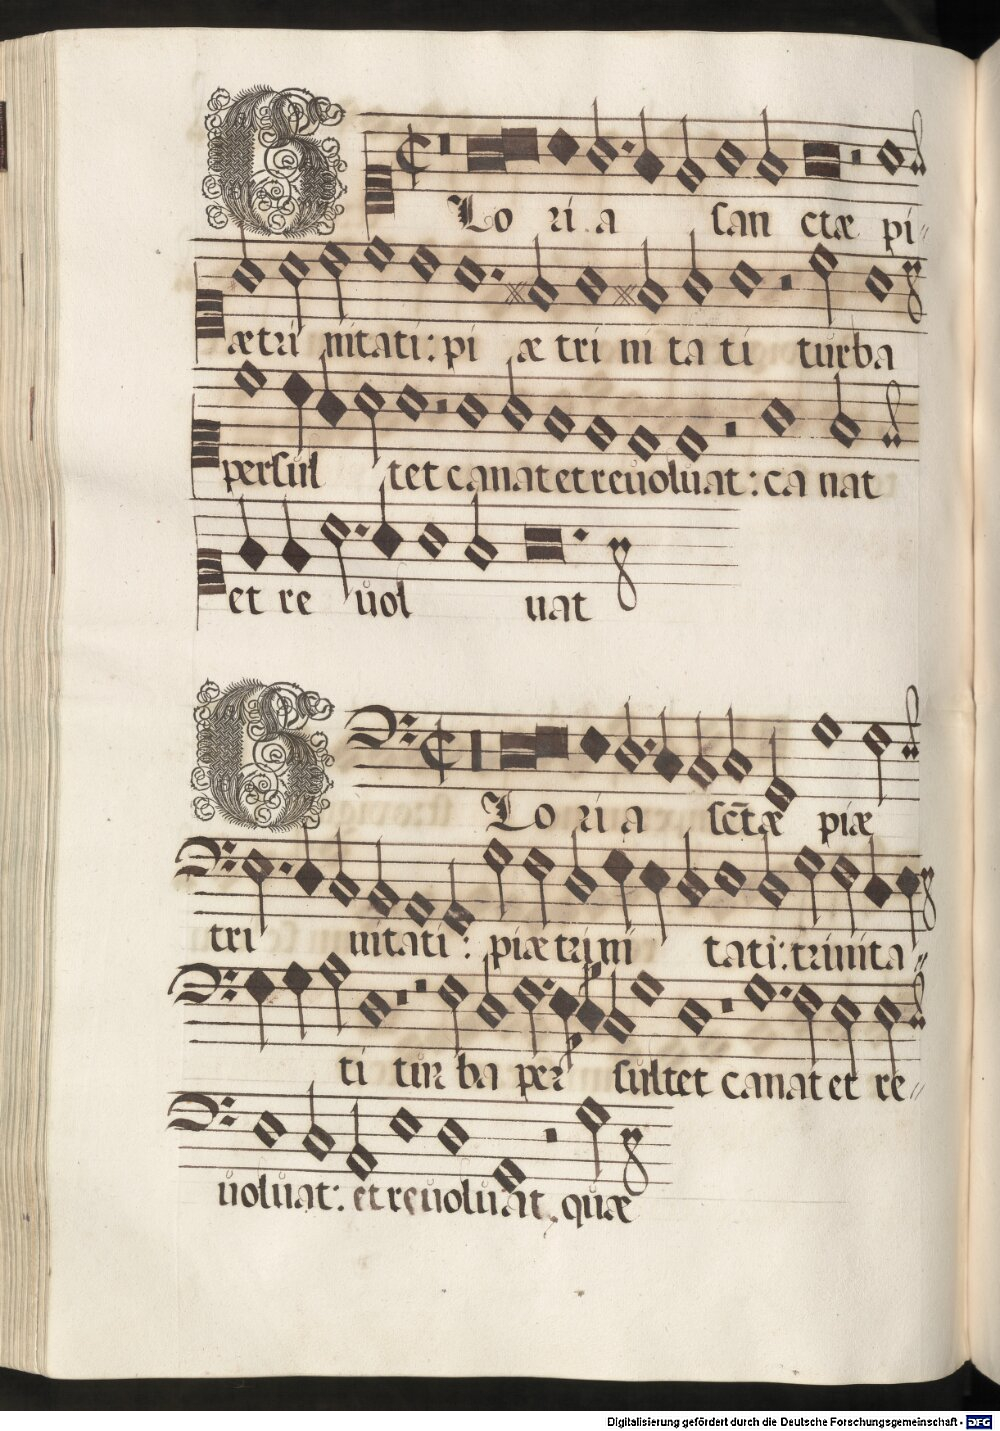 GLo ri a san ctæ pi-
æ tri nitati: pi æ tri ni ta ti turba
persul tet canat et reuoluat: ca nat
et re uol uat
GLo ri a sc̄tæ piæ
tri nitati: piæ trini tati: trinita-
ti tur ba per sultet canat et re-
uoluat: et reuoluat. quæ
Digitalisierung gefördert durch die Deutsche Forschungsgemeinschaft - DFG